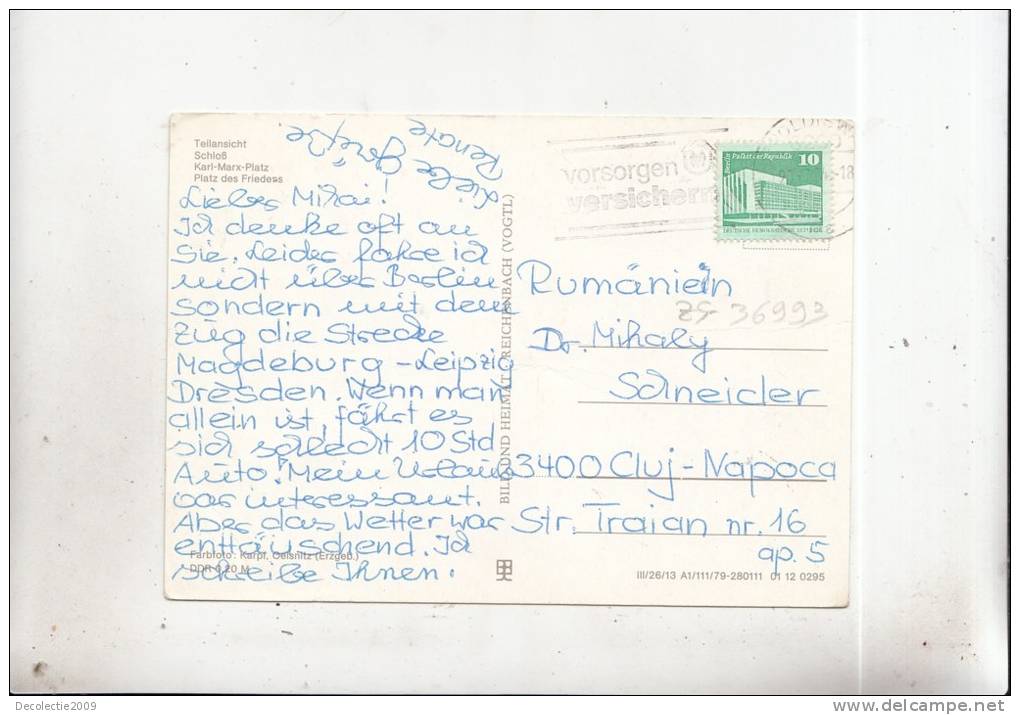 Teilansicht
Schloß
Karl-Marx-Platz
Platz des Friedens
Liebe Grüße
Renate
Lieber Mihai!
Ich denke oft an
Sie. Leider fahre ich
nicht über Berlin
sondern mit dem
Zug die Strecke
Magdeburg-Leipzig
Dresden. Wenn man
allein ist, fährt es
sich schlecht 10 Std
Auto! Mein Urlaub
war interessant.
Aber das Wetter war
enttäuschend. Ich
schreibe Ihnen.
Farbfoto: Karpf, Oelsnitz (Erzgeb.)
DDR 0,20 M
BILD UND HEIMAT REICHENBACH (VOGTL)
vorsorgen
versichern
Berlin Palast der Republik 10
-18
Rumänien
ZS-36993
Dr. Mihaly
Schneider
3400 Cluj-Napoca
Str. Traian nr. 16
ap. 5
III/26/13 A1/111/79-280111 01 12 0295
Decolectie2009